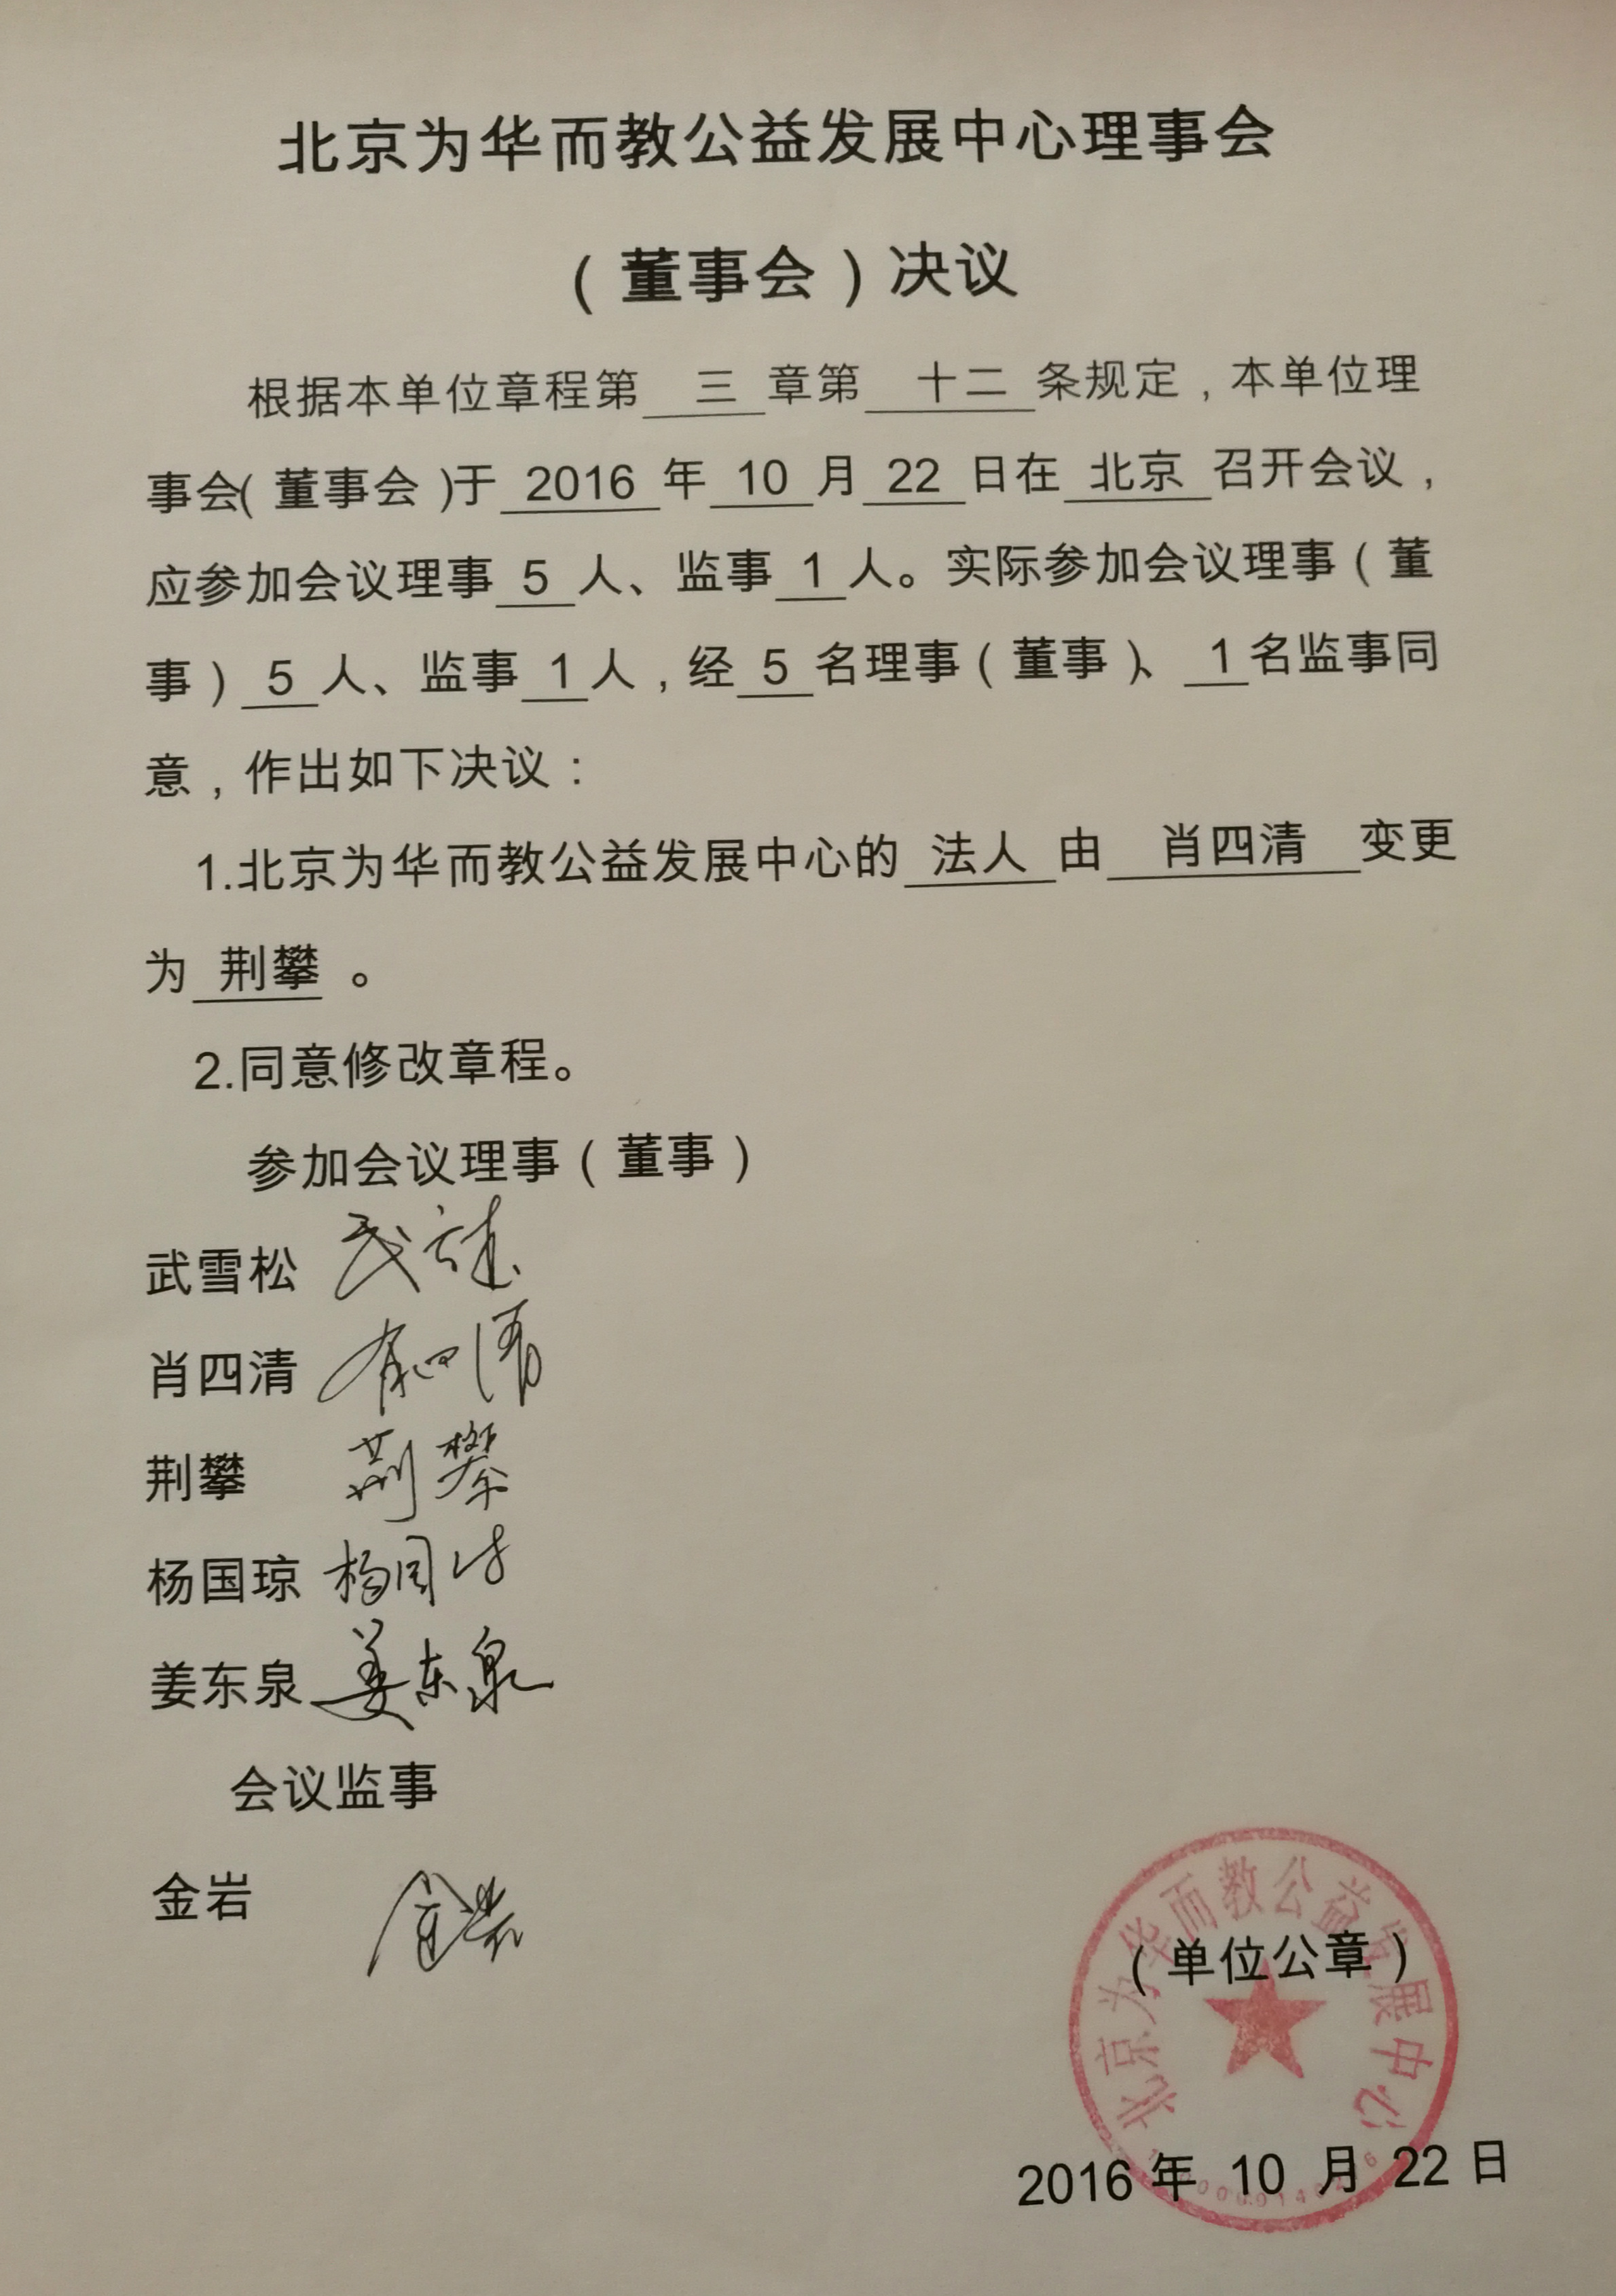 北京为华而教公益发展中心理事会
（董事会）决议
根据本单位章程第 三 章第 十二 条规定，本单位理
事会(董事会)于 2016 年 10 月 22 日在 北京 召开会议，
应参加会议理事 5 人、监事 1 人。实际参加会议理事（董
事）5 人、监事 1 人，经 5 名理事（董事）、1 名监事同
意，作出如下决议：
1.北京为华而教公益发展中心的 法人 由 肖四清 变更
为 荆攀 。
2.同意修改章程。
参加会议理事（董事）
武雪松 武雪松
肖四清 肖四清
荆攀 荆攀
杨国琼 杨国琼
姜东泉 姜东泉
会议监事
金岩 金岩
北京为华而教公益发展中心
（单位公章）
2016 年 10 月 22 日